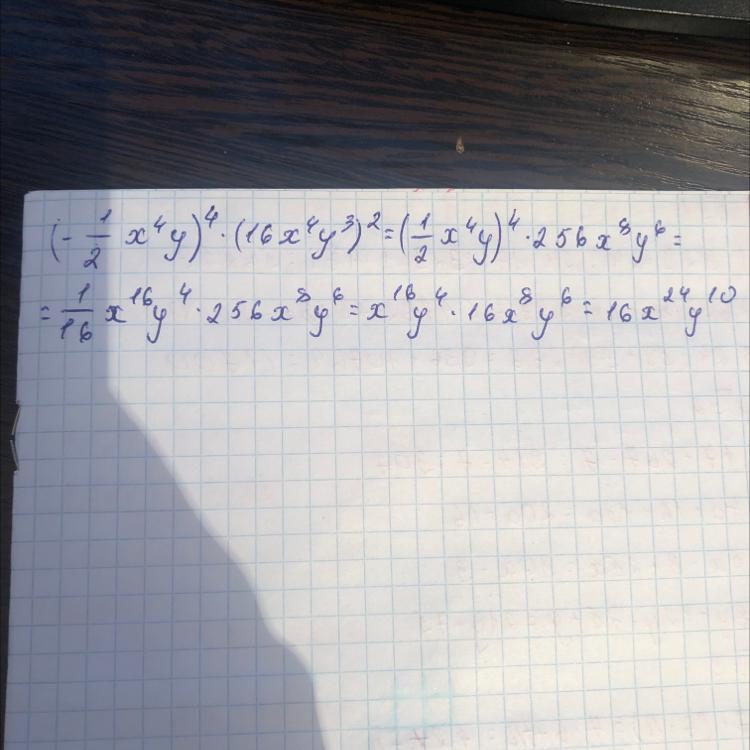 (-1/2 x⁴y)⁴·(16x⁴y³)²=(1/2 x⁴y)⁴·256x⁸y⁶=
=1/16 x¹⁶y⁴·256x⁸y⁶=x¹⁶y⁴·16x⁸y⁶=16x²⁴y¹⁰